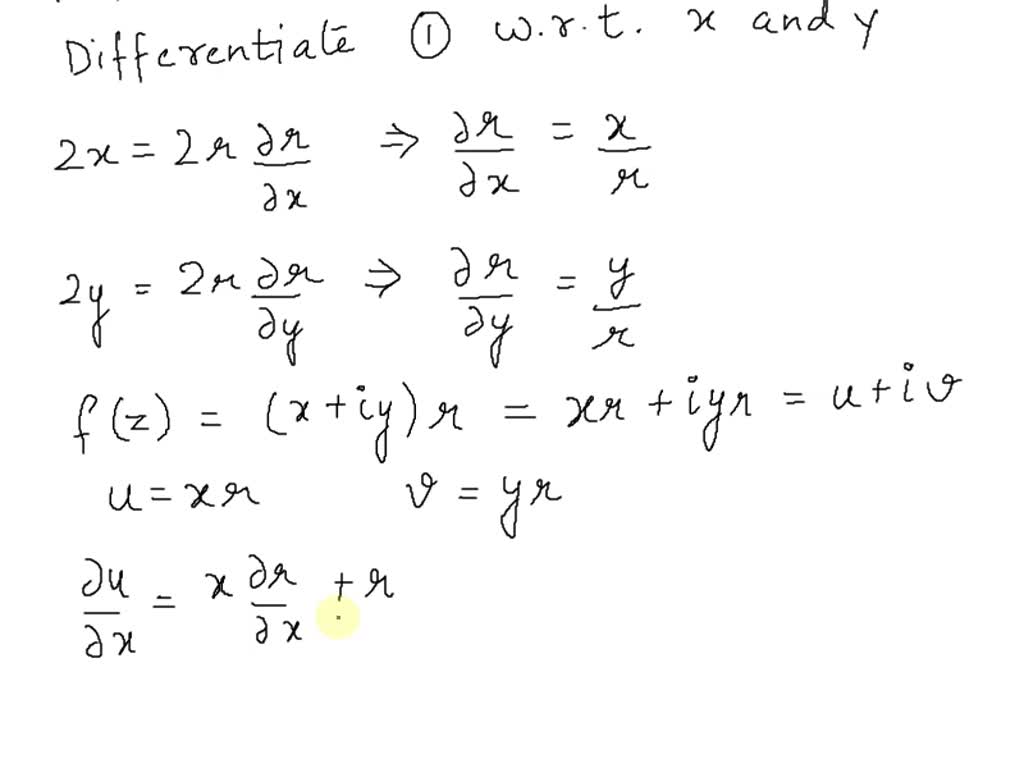 Differentiate ① w.r.t. x and y
2x = 2r ∂r/∂x ⇒ ∂r/∂x = x/r
2y = 2r ∂r/∂y ⇒ ∂r/∂y = y/r
f(z) = (x+iy)r = xr + iyr = u+iv
u = xr v = yr
∂u/∂x = x ∂r/∂x + r